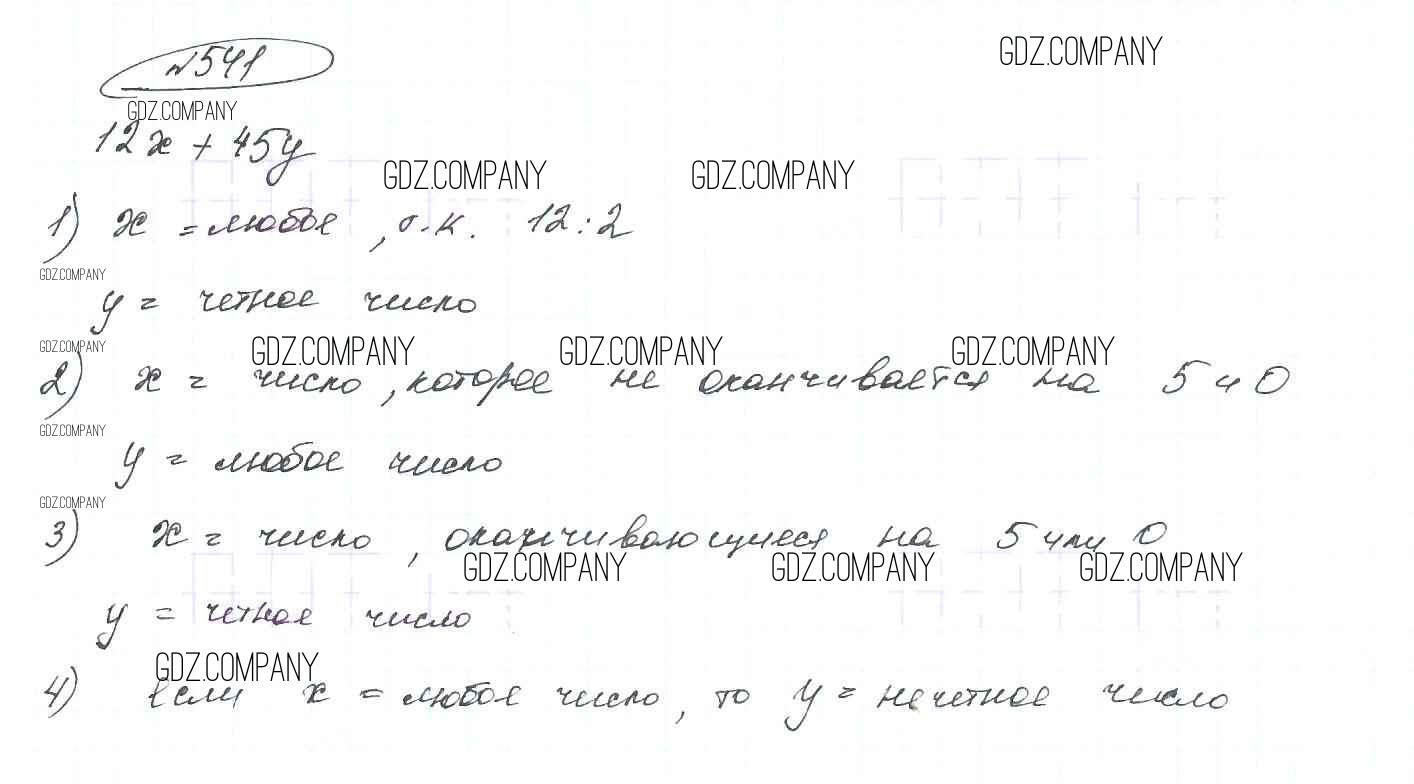 №541
GDZ.COMPANY
GDZ.COMPANY
12x + 45y
GDZ.COMPANY GDZ.COMPANY
1) x = любое, т.к. 12:2
GDZ.COMPANY
y = четное число
GDZ.COMPANY GDZ.COMPANY GDZ.COMPANY GDZ.COMPANY
2) x = число, которое не оканчивается на 5 и 0
GDZ.COMPANY
y = любое число
GDZ.COMPANY
3) x = число, оканчивающиеся на 5 или 0
GDZ.COMPANY GDZ.COMPANY GDZ.COMPANY
y = четное число
GDZ.COMPANY
4) Если x = любое число, то y = нечетное число